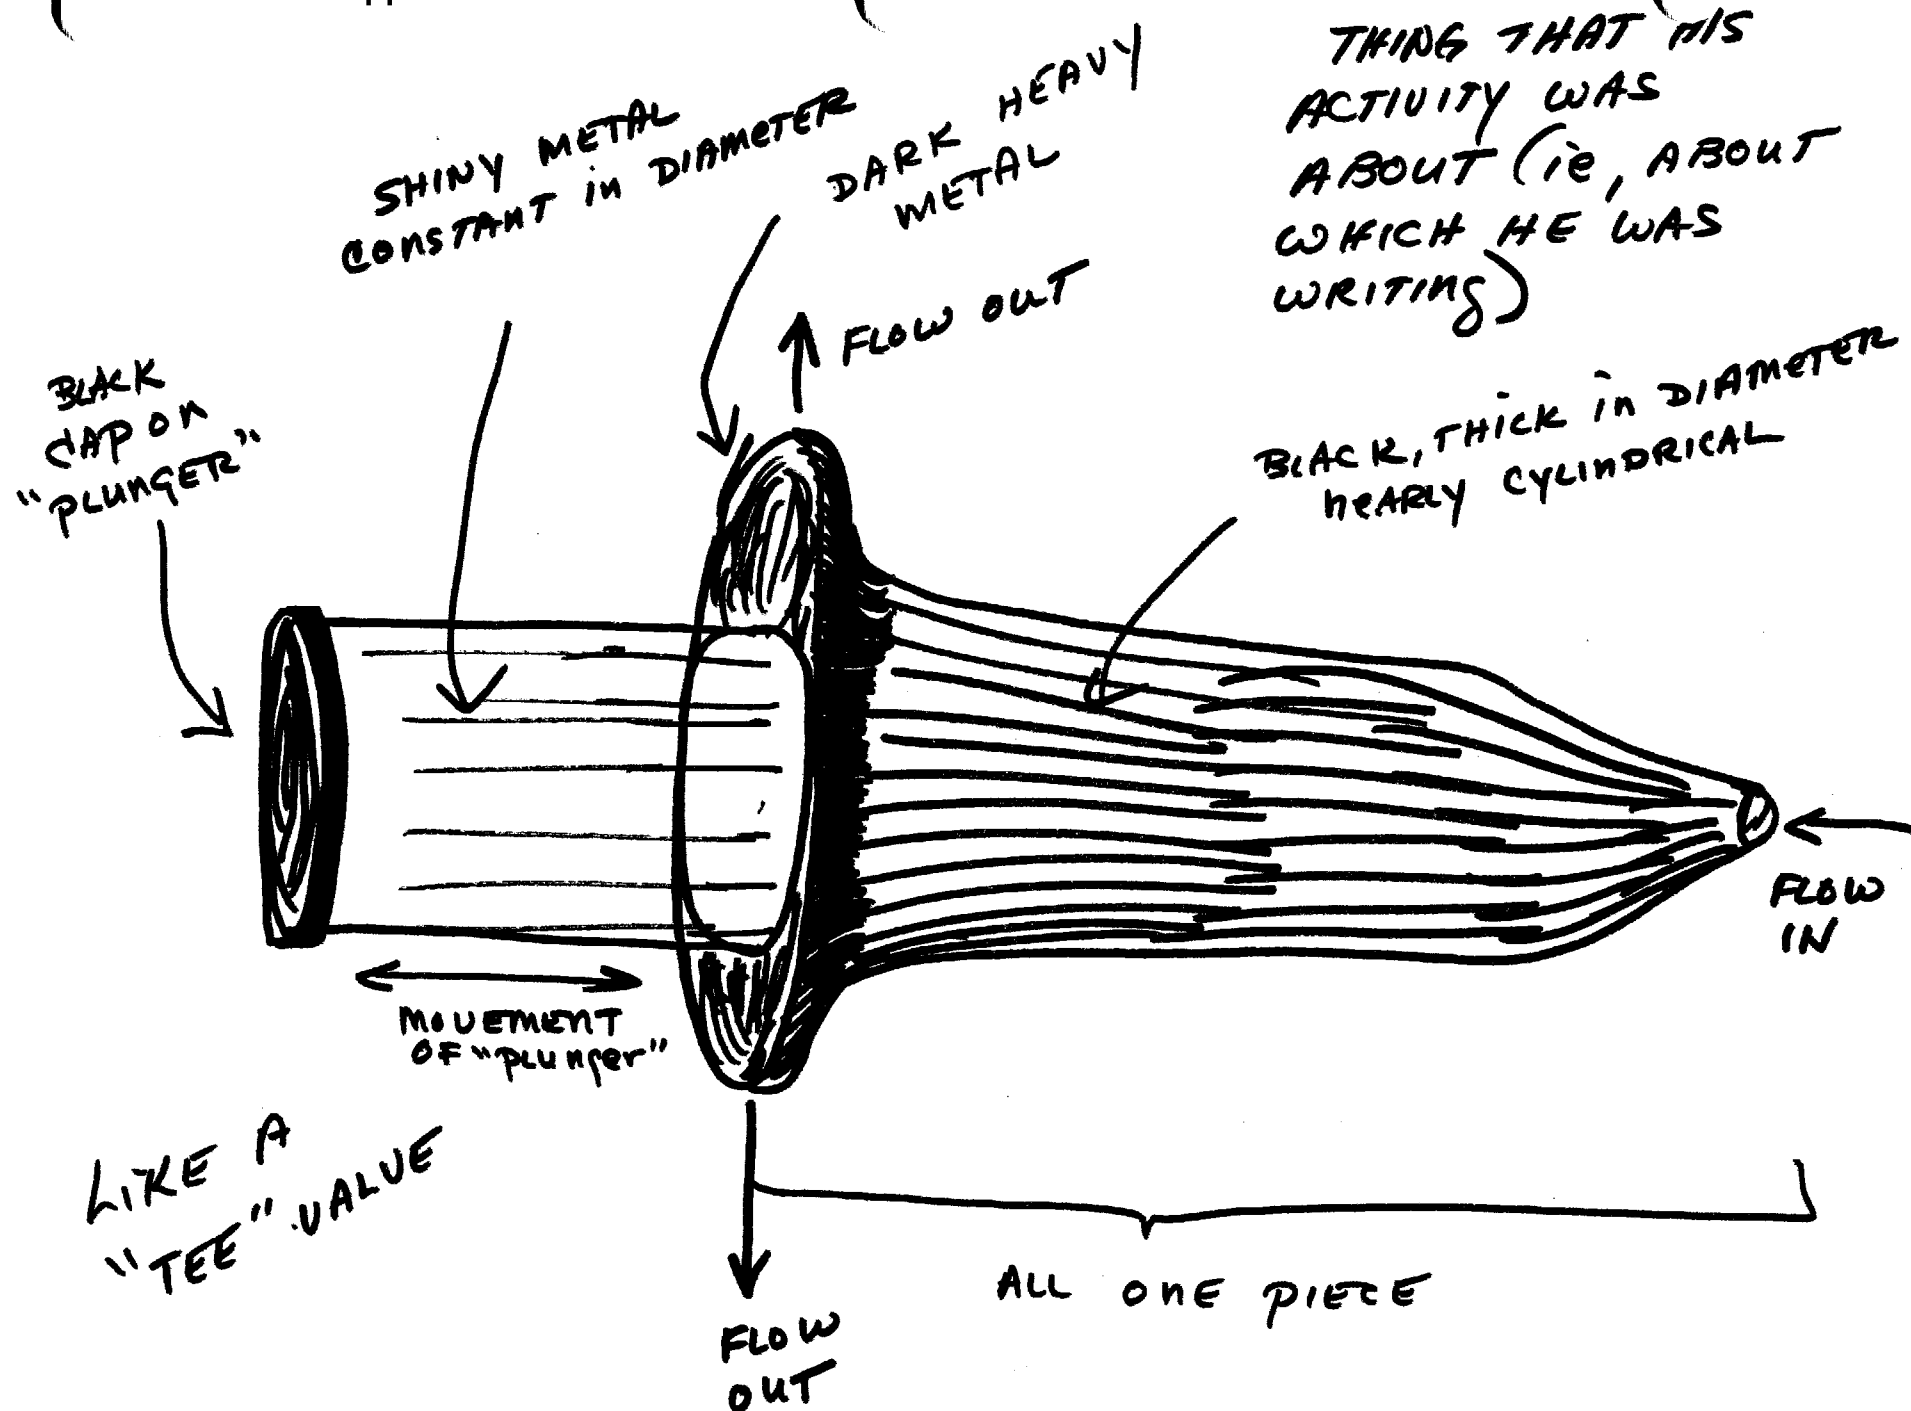 THING THAT HIS
ACTIVITY WAS
ABOUT (ie, ABOUT
WHICH HE WAS
WRITING)
SHINY METAL
CONSTANT in DIAMETER
DARK HEAVY
METAL
FLOW OUT
BLACK
CAP ON
"PLUNGER"
BLACK, THICK in DIAMETER
NEARLY CYLINDRICAL
FLOW
IN
MOVEMENT
OF "PLUNGER"
LIKE A
"TEE" VALVE
ALL ONE PIECE
FLOW
OUT